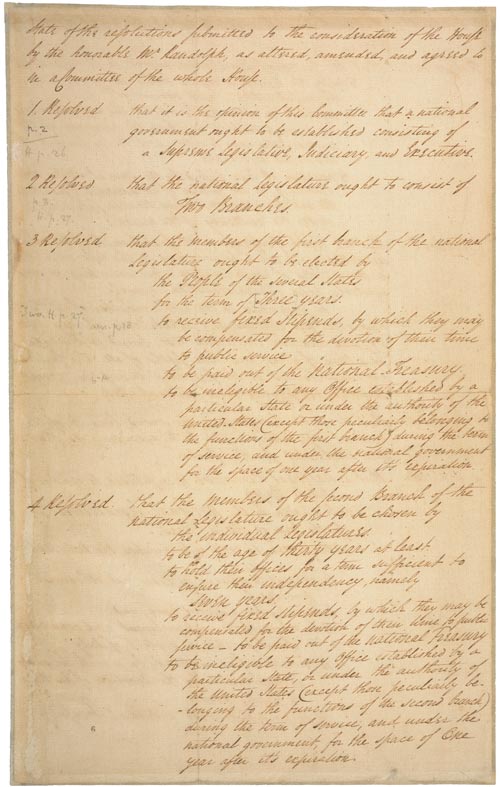 State of the resolutions submitted to the consideration of the House
by the honorable Mr. Randolph, as altered, amended, and agreed to
in a Committee of the whole House.
1. Resolved that it is the opinion of this Committee that a national
government ought to be established consisting of
a Supreme Legislative, Judiciary, and Executive.
p. 2
p. 26
2 Resolved that the national Legislature ought to consist of
Two Branches.
p. 3.
p. 27.
3 Resolved that the members of the first branch of the national
Legislature ought to be elected by
the People of the several States
for the term of Three years.
to receive fixed Stipends, by which they may
be compensated for the devotion of their time
to public service
to be paid out of the National-Treasury.
to be ineligible to any Office established by a
particular State or under the authority of the
United States (except those peculiarly belonging to
the functions of the first branch) during the term
of service, and under the national government
for the space of one year after its expiration.
4 Resolved. that the members of the second Branch of the
national Legislature ought to be chosen by
the individual Legislatures.
to be of the age of thirty years at least.
to hold their offices for a term sufficient to
ensure their independency, namely
seven years.
to receive fixed stipends, by which they may be
compensated for the devotion of their time to public
service - to be paid out of the National Treasury
to be ineligible to any Office established by a
particular State, or under the authority of
the United States (except those peculiarly be-
-longing to the functions of the second branch)
during the term of service, and under the
national government, for the space of One
year after its expiration.